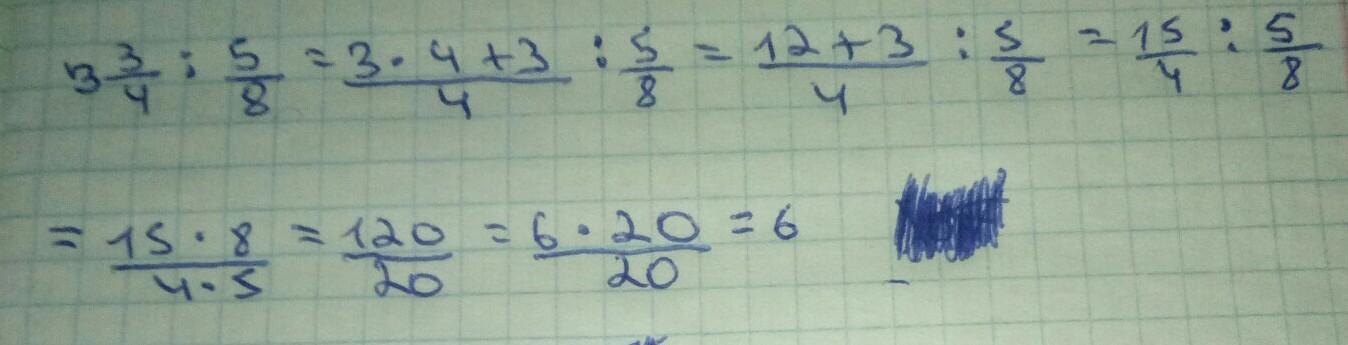 3 3/4 : 5/8 = (3 · 4 + 3)/4 : 5/8 = (12 + 3)/4 : 5/8 = 15/4 : 5/8
= (15 · 8)/(4 · 5) = 120/20 = (6 · 20)/20 = 6